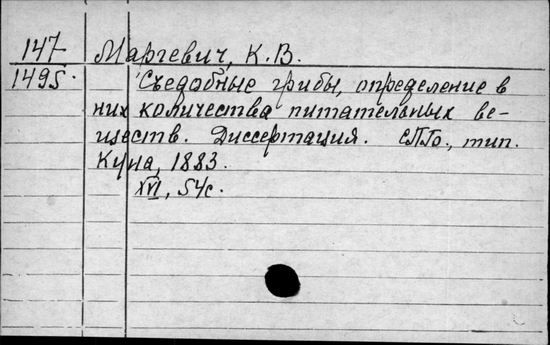 147 Маргевич, К.В.
1495. Съедобные грибы, определение в
них количества питательных ве-
ществ. Диссертация. СПБ., тип.
Куна, 1883.
XVI, 54с.